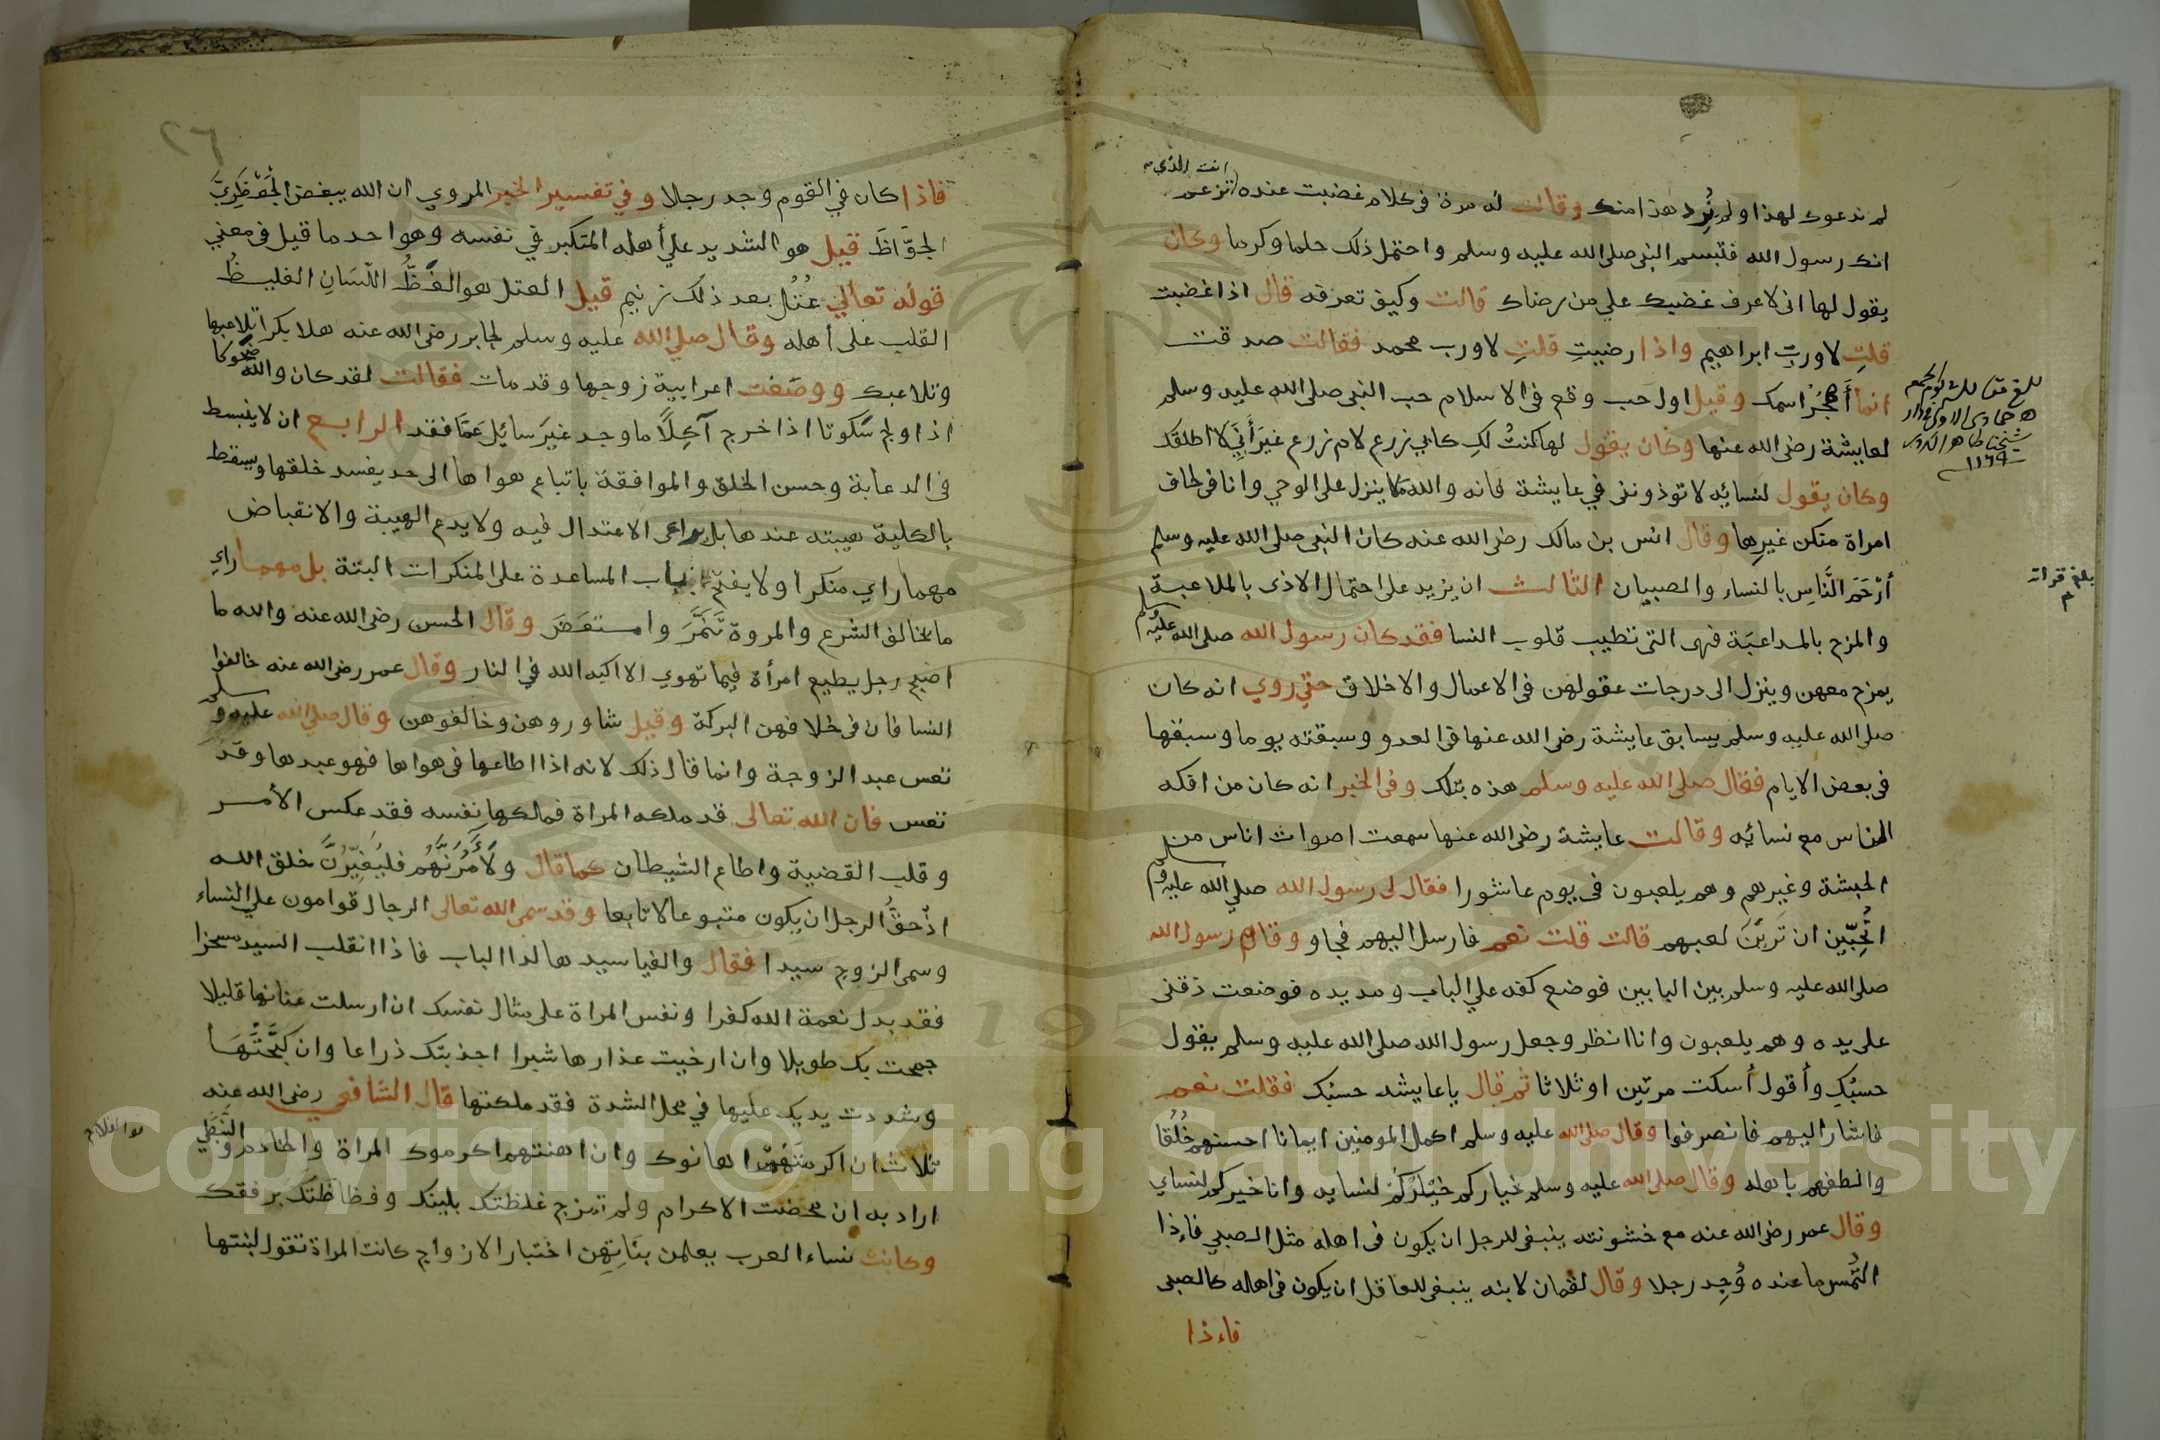 انت الذي
لم ندعوك لهذا ولم نُرِد هذا منك وقالت له مرة في كلام غضبت عنده تزعم
انك رسول الله فتبسم النبي صلى الله عليه وسلم واحتمل ذلك حلما وكرما وكان
يقول لها اني لاعرف غضبك علي من رضاك قالت وكيف تعرفه قال اذا غضبت
قلتِ لا وربّ ابراهيم واذا رضيتِ قلتِ لا ورب محمد فقالت صدقت
انما أَهْجُرُ اسمك وقيل اول حب وقع في الاسلام حب النبي صلى الله عليه وسلم
لعايشة رضي الله عنها وكان يقول لها كنتُ لكِ كابي زرع لام زرع غيرَ أَنِّي لا اطلقك
وكان يقول لنسائه لا توذونني في عايشة فانه والله ما ينزل علي الوحي وانا في لحاف
امراة منكن غيرِها وقال انس بن مالك رضي الله عنه كان النبي صلى الله عليه وسلم
أَرْحَمَ النَّاسِ بالنساء والصبيان الثالث ان يزيد على احتمال الاذى بالملاعبة
والمزح بالمداعبَة فهي التي تطيب قلوب النسا فقد كان رسول الله صلى الله عليه وسلم
يمزح معهن وينزل الى درجات عقولهن في الاعمال والاخلاق حتي روي انه كان
صلى الله عليه وسلم يسابق عايشة رضي الله عنها في العدو وسبقته يوما وسبقها
في بعض الايام فقال صلى الله عليه وسلم هذه بتلك وفي الخبر انه كان من افكه
الناس مع نسائه وقالت عايشة رضي الله عنها سمعت اصوات اناس من
الحبشة وغيرهم وهم يلعبون في يوم عاشورا فقال لي رسول الله صلي الله عليه وسلم
اتُحِبِّين ان تَرَيْنَ لعبهم قالت قلت نعم فارسل اليهم فجاو وقام رسول الله
صلى الله عليه وسلم بين البابين فوضع كفه علي الباب ومد يده فوضعت ذقني
على يده وهم يلعبون وانا انظر وجعل رسول الله صلى الله عليه وسلم يقول
حسبُكِ وأقول أسكت مرتين او ثلاثا ثم قال يا عايشه حسبُك فقلت نعم
فاشار اليهم فانصرفوا وقال صلى الله عليه وسلم اكمل المومنين ايمانا احسنهم خُلُقا
والطفهم باهله وقال صلى الله عليه وسلم خياركم خَيْرُكُمْ لنسايه وانا خيركم لنساي
وقال عمر رضي الله عنه مع خشونته ينبغي للرجل ان يكون في اهله مثل الصبي فاذا
التُمس ما عنده وُجِد رجلا وقال لقمان لابنه ينبغي للعاقل ان يكون في اهله كالصبي
فاءذا
شيخنا طاهر
١١٦٩
بلغ قراة
٢٦
فاذا كان في القوم وجد رجلا وفي تفسير الخبر المروي ان الله يبغض الجَعْظَرِيَّ
الجوّاظَ قيل هو الشديد علي أهله المتكبر في نفسه وهو احد ما قيل في معني
قوله تعالي عُتُلٍّ بعد ذلك زنيم قيل العتل هو الفَظُّ اللّسَانِ الغليظُ
القلب على أهله وقال صلى الله عليه وسلم لجابر رضي الله عنه هلا بكرا تلاعبها
وتلاعبك ووصفت اعرابية زوجها وقد مات فقالت لقد كان والله ضحوكا
اذا ولج سَكُوتا اذا خرج آكِلًا ما وجد غيرَ سايل عَمّا فقد الرابع ان لا ينبسط
في الدعابة وحسن الخلق والموافقة باتباع هواها الى حد يفسد خلقها ويسقط
بالكلية هيبته عندها بل يراعى الاعتدال فيه ولا يدع الهيبة والانقباض
مهما راي منكرا ولا يفتح باب المساعدة على المنكرات البتة بل مهما راي
ما يخالف الشرع والمروة تَنَمَّرَ وامتعَضَ وقال الحسن رضي الله عنه والله ما
اصبح رجل يطيع امرأة فيما تهوي الا اكبه الله في النار وقال عمر رضي الله عنه خالفوا
النسا فان في خلافهن البركة وقيل شاوروهن وخالفوهن وقال صلى الله عليه وسلم
تعس عبد الزوجة وانما قال ذلك لانه اذا اطاعها في هواها فهو عبدها وقد
تعس فان الله تعالى قد ملكه المراة فملكها نفسه فقد عكس الأمر
وقلب القضية واطاع الشيطان كما قال ولَأَمُرَنَّهُم فليُغَيِّرُنَّ خلق الله
اذ حقُّ الرجل ان يكون متبوعا لا تابعا وقد سمى الله تعالى الرجال قوامون علي النساء
وسمى الزوج سيدا فقال والفيا سيدها لدا الباب فاذا انقلب السيد مسخرا
فقد بدل نعمة الله كفرا ونفس المراة على مثال نفسك ان ارسلت عنانها قليلا
جمحت بك طويلا وان ارخيت عذارها شبرا اجذبتك ذراعا وان كَبَحْتَهَا
وشددت يديك عليها في محل الشدة فقد ملكتها قال الشافعي رضي الله عنه
ثلاث ان اكرمتَهُمْ اهانوك وان اهنتهم اكرموك المراة والخادم والنَّبَطي
اراد به ان محضت الاكرام ولم تمزج غلظتك بلينك وفظاظَتك برفقك
وكانت نساء العرب يعلمن بَنَاتِهِن اختبار الازواج كانت المراة تقول لبنتها
هو الفلاح
1957
Copyright © King Saud University